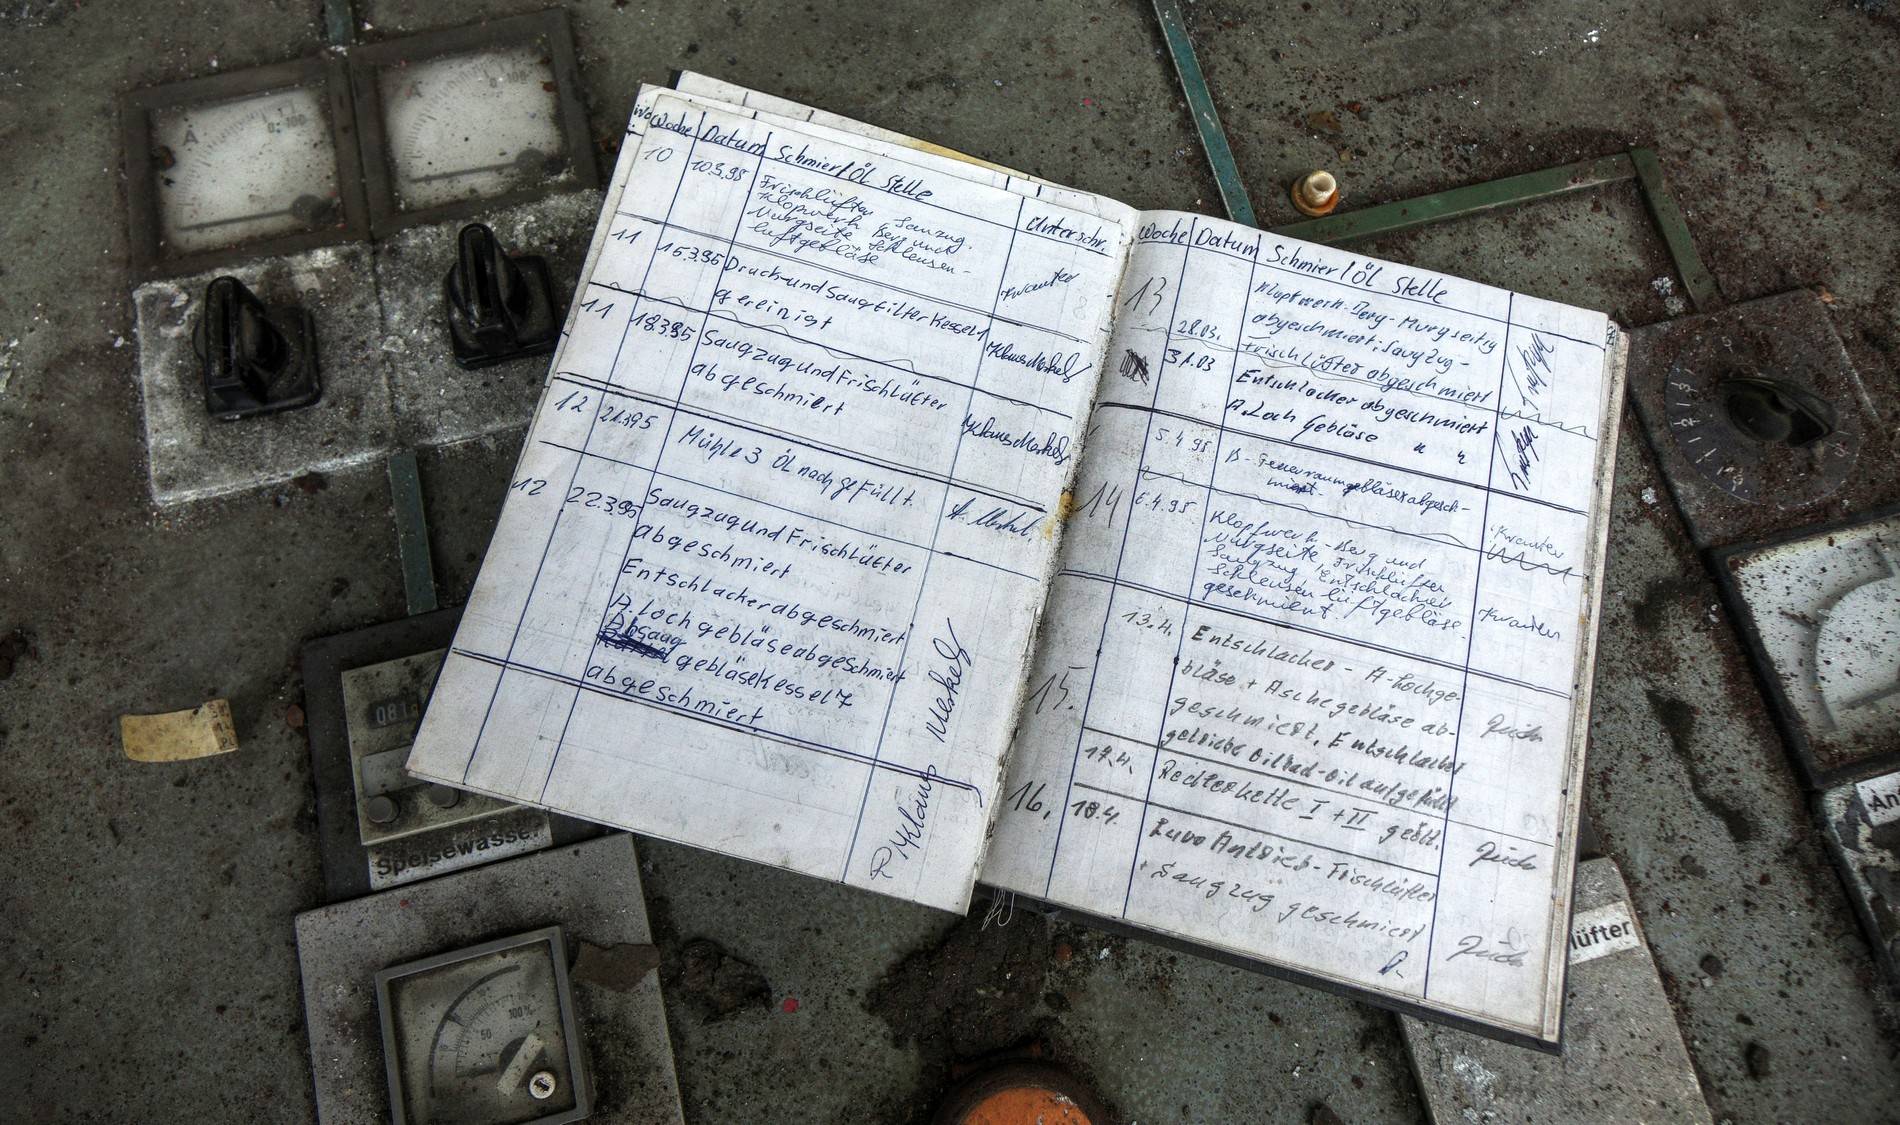 Woche Datum Schmier/Öl Stelle Unterschr.
10 10.3.95 Frischlüfter Saugzug.
Klopfwerk Berg und
Murgseite Schleusen-
luftgebläse
Kwanter
11 16.3.95 Druck und Saugfilter Kessel 1
gereinigt
M Klaus Merkel
11 18.3.95 Saugzug und Frischlüfter
abgeschmiert
M Klaus Merkel
12 21.3.95 Mühle 3 Öl nachgefüllt.
12 22.3.95 Saugzug und Frischlüfter
abgeschmiert
Entschlacker abgeschmiert
A. Loch gebläse abgeschmiert
Absaug
gebläse Kessel 7
abgeschmiert
M Klaus Merkel
Woche Datum Schmier/Öl Stelle
13 Klopfwerk. Berg- Murgseitig
28.03. abgeschmiert; Saugzug-
Frischlüfter abgeschmiert
31.03 Entschlacker abgeschmiert
A. Loch Gebläse " "
5.4.95 B- Feuerraumgebläse abgesch-
miert.
Kwanter
14 6.4.95. Klopfwerk- Berg und
Murgseite Frischlüfter
Saugzug, Entschlacker
Schleusen luftgebläse.
geschmiert.
Kwanter
15. 13.4. Entschlacker - A-Lochge-
bläse + Aschegebläse ab-
geschmiert, Entschlacker
getriebe Ölbad-Öl aufgefüllt
17.4. Redlerkette I + II geölt.
16. 18.4. Luvo Antrieb- Frischlüfter
+ Saugzug geschmiert
A
0. 100
A
100
Speisewasser
50
100%
lüfter
An